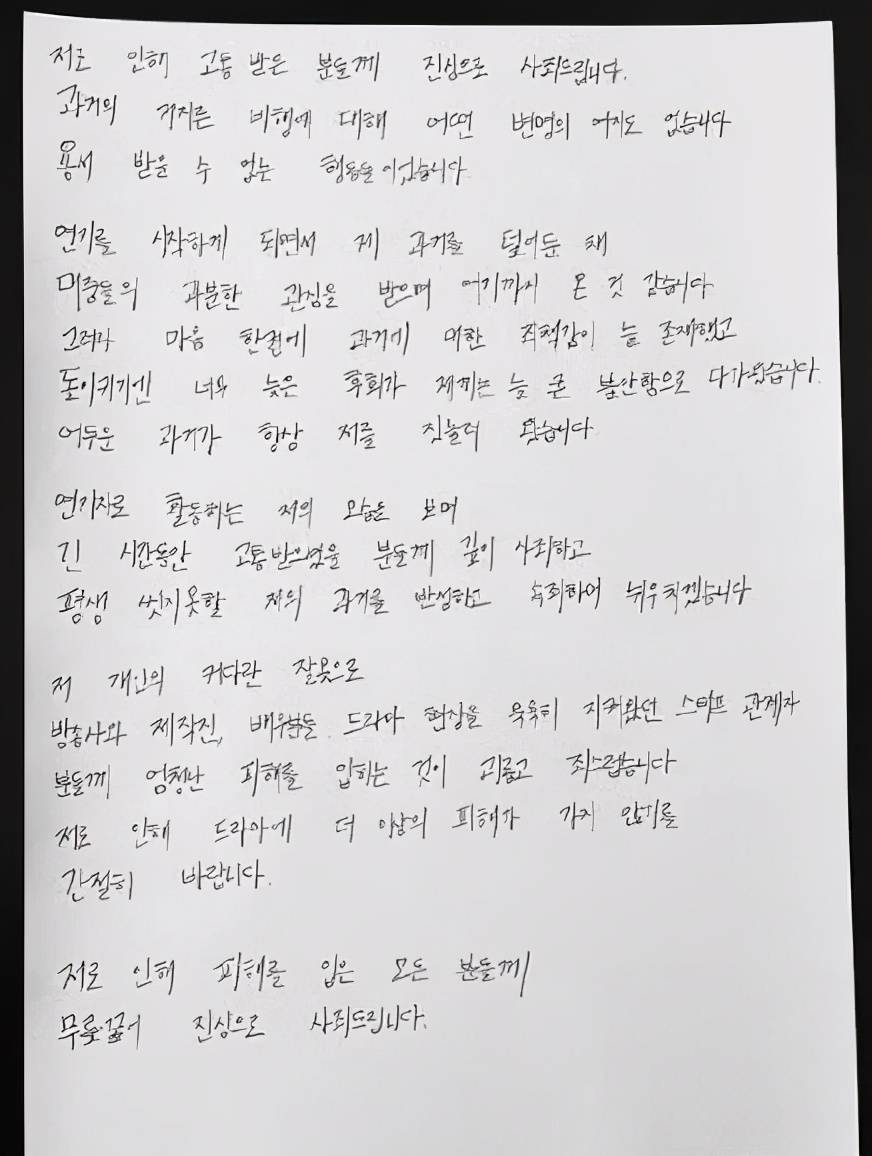 저로 인해 고통 받은 분들께 진심으로 사죄드립니다.
과거의 저지른 비행에 대해 어떤 변명의 여지도 없습니다
용서 받을 수 없는 행동들이었습니다.
연기를 시작하게 되면서 제 과거를 덮어둔 채
대중들의 과분한 관심을 받으며 여기까지 온 것 같습니다
그러나 마음 한켠에 과거에 대한 죄책감이 늘 존재했고
돌이키기엔 너무 늦은 후회가 저에게는 늘 큰 불안함으로 다가왔습니다.
어두운 과거가 항상 저를 짓눌러 왔습니다
연기자로 활동하는 저의 모습을 보며
긴 시간동안 고통받으셨을 분들께 깊이 사죄하고
평생 씻지못할 저의 과거를 반성하고 속죄하며 뉘우치겠습니다
저 개인의 커다란 잘못으로
방송사와 제작진, 배우분들. 드라마 현장을 묵묵히 지켜왔던 스태프 관계자
분들께 엄청난 피해를 입히는 것이 괴롭고 죄스럽습니다
저로 인해 드라마에 더 이상의 피해가 가지 않기를
간절히 바랍니다.
저로 인해 피해를 입은 모든 분들께
무릎꿇어 진심으로 사죄드립니다.